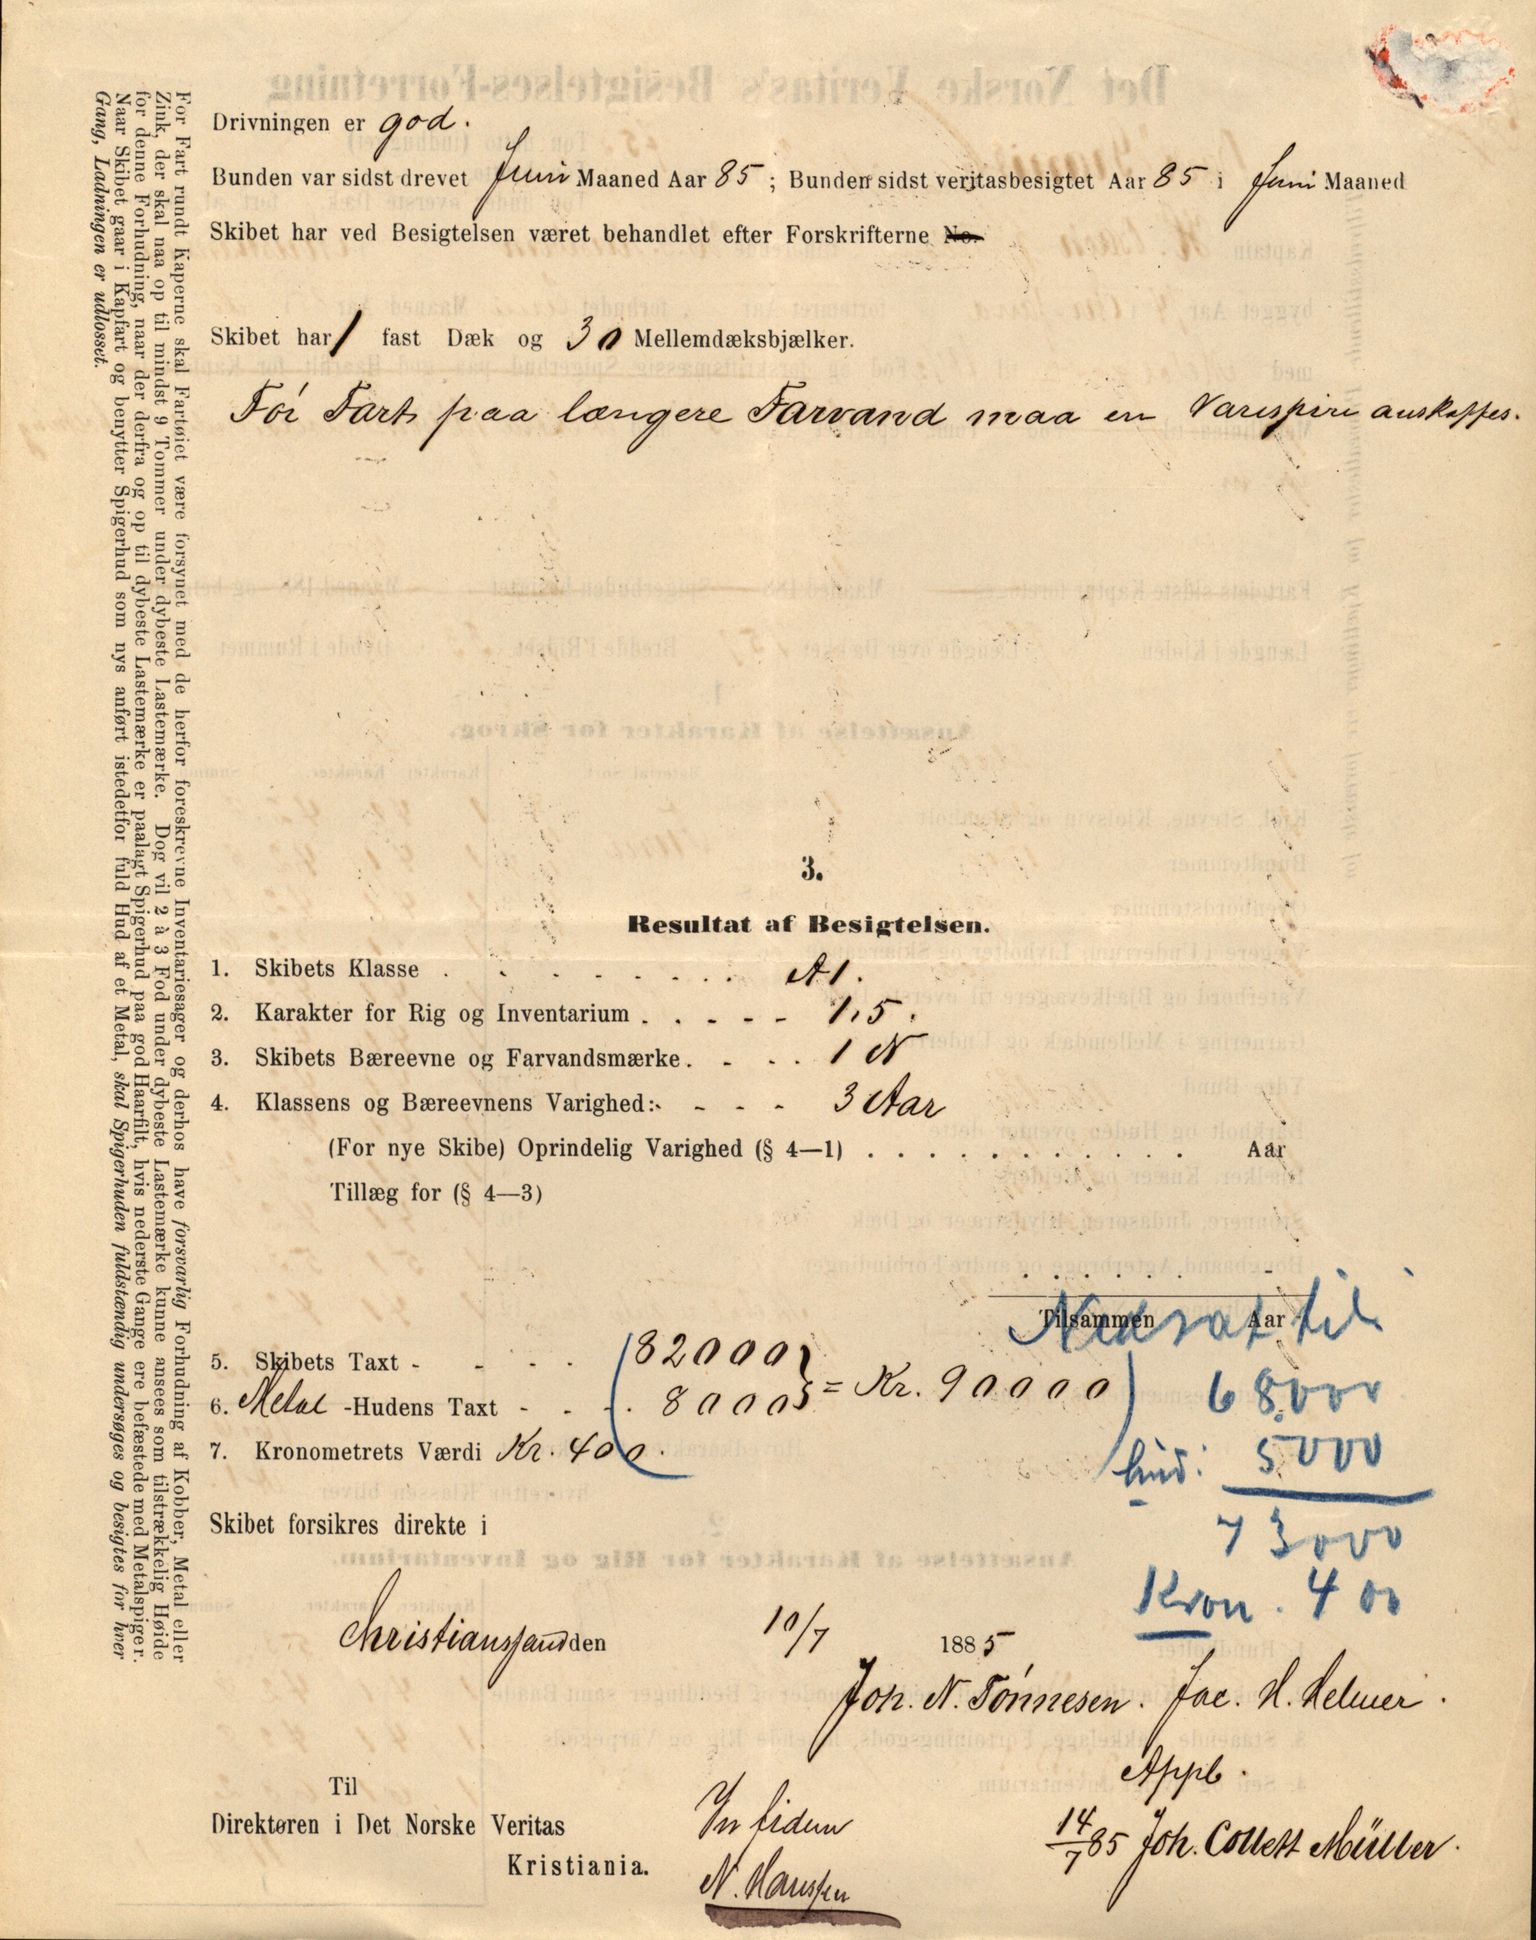 Drivningen er god.
Bunden var sidst drevet Juni Maaned Aar 85; Bunden sidst veritasbesigtet Aar 85 i Juni Maaned
Skibet har ved Besigtelsen været behandlet efter Forskrifterne No.
Skibet har 1 fast Dæk og 30 Mellemdæksbjælker.
For Fart paa længere Farvand maa en Varespire anskaffes.
3.
Resultat af Besigtelsen.
1. Skibets Klasse . . . . . . . . A1.
2. Karakter for Rig og Inventarium . . . . . 1,5.
3. Skibets Bæreevne og Farvandsmærke. . . . 1 N
4. Klassens og Bæreevnens Varighed: . . . . 3 Aar
(For nye Skibe) Oprindelig Varighed (§ 4—1) . . . . . . . . . . . Aar
Tillæg for (§ 4—3)
. . . . . .
Tilsammen Aar
Nedsat til
5. Skibets Taxt - - - - (82000
6. Metal -Hudens Taxt - - - 8000 } = Kr. 90000)
68000
7. Kronometrets Værdi Kr. 400.
hud: 5000
73000
Skibet forsikres direkte i
Kron. 400
Christianssand den 10/7 1885
Joh. N. Tónnesen. Jac. H. Helmer.
Appb.
14/7 85 Joh. Collett Müller.
Til
Direktøren i Det Norske Veritas
Kristiania.
In fidem
N. Hanssen
For Fart rundt Kaperne skal Fartøiet være forsynet med de herfor foreskrevne Inventariesager og derhos have forsvarlig Forhudning af Kobber, Metal eller
Zink, der skal naa op til mindst 9 Tommer under dybeste Lastemærke. Dog vil 2 à 3 Fod under dybeste Lastemærke kunne ansees som tilstrækkelig Høide
for denne Forhudning, naar der derfra og op til dybeste Lastemærke er paalagt Spigerhud paa god Haarfilt, hvis nederste Gange ere befæstede med Metalspiger.
Naar Skibet gaar i Kapfart og benytter Spigerhud som nys anført istedetfor fuld Hud af et Metal, skal Spigerhuden fuldstændig undersøges og besigtes for hver
Gang, Ladningen er udlosset.